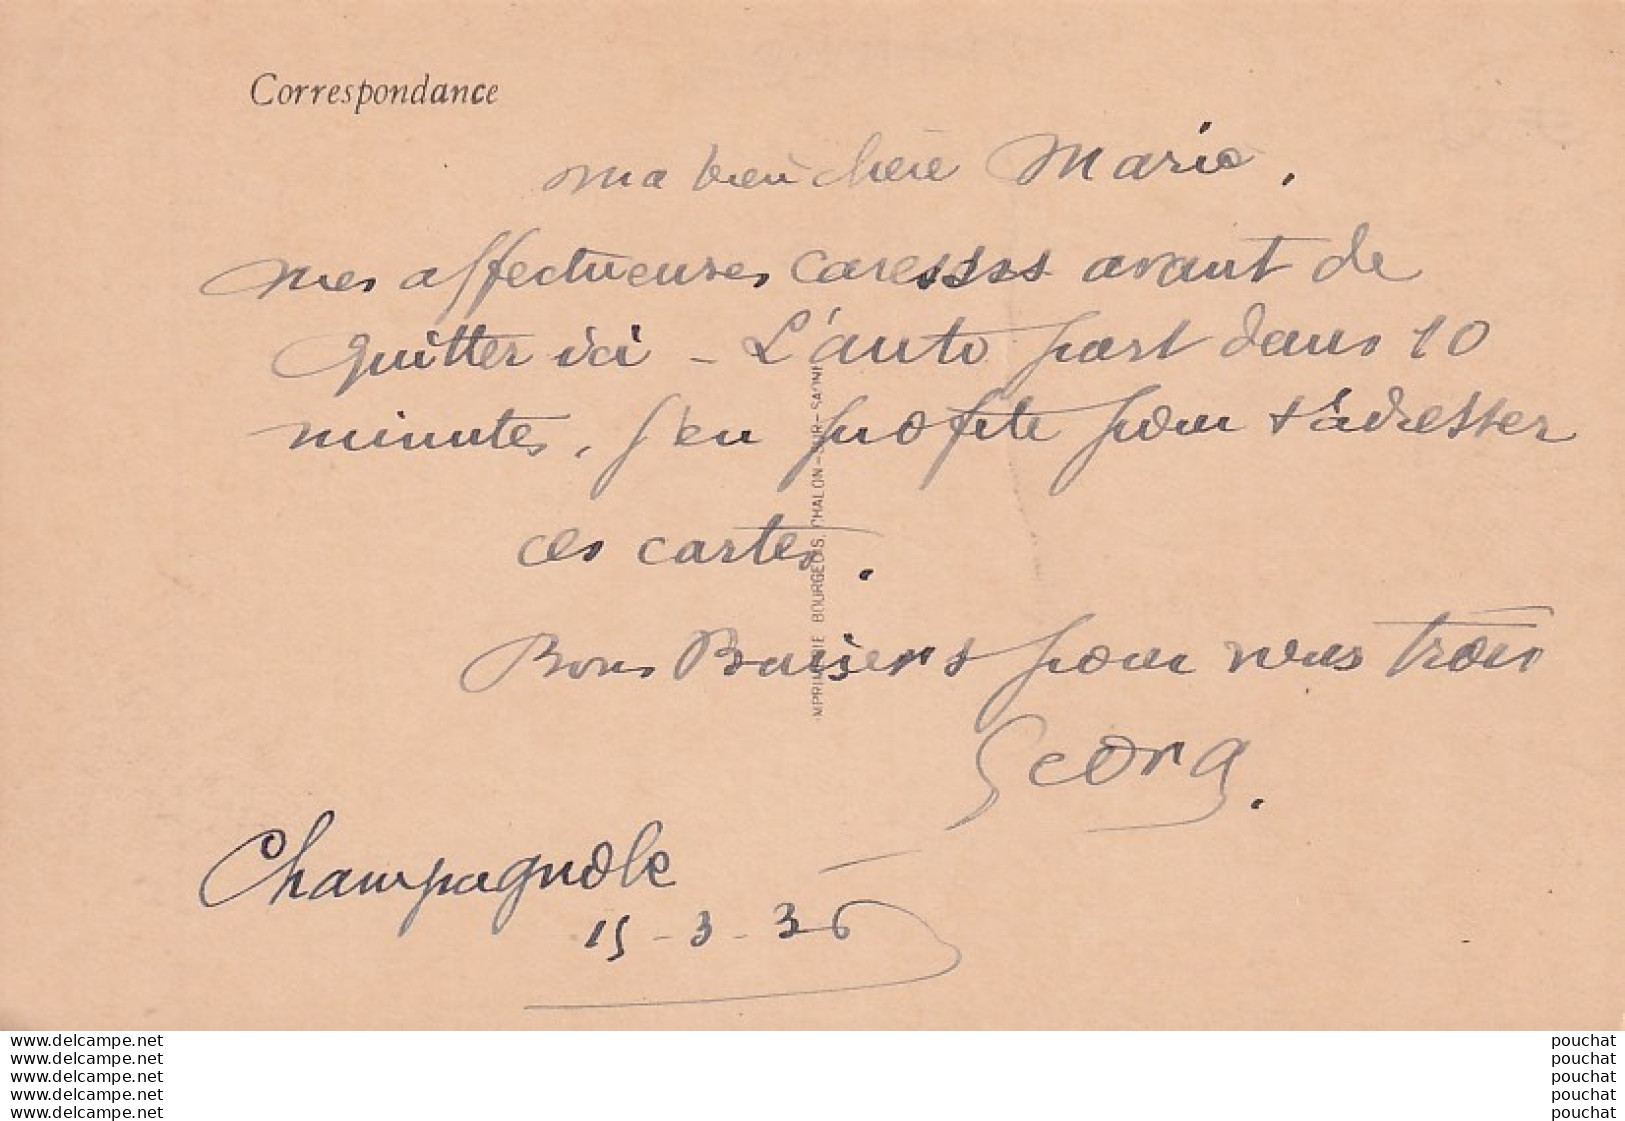 Correspondance
Ma bien chère Marie,
mes affectueuses caresses avant de
quitter ici - L'auto part dans 10
minutes, j'en profite pour t'adresser
ces cartes.
Bons Baisers pour vous trois
Georg.
Champagnole
15-3-36
IMPRIMERIE BOURGEOIS, CHALON-SUR-SAONE
www.delcampe.net pouchat
www.delcampe.net pouchat
www.delcampe.net pouchat
www.delcampe.net pouchat
www.delcampe.net pouchat